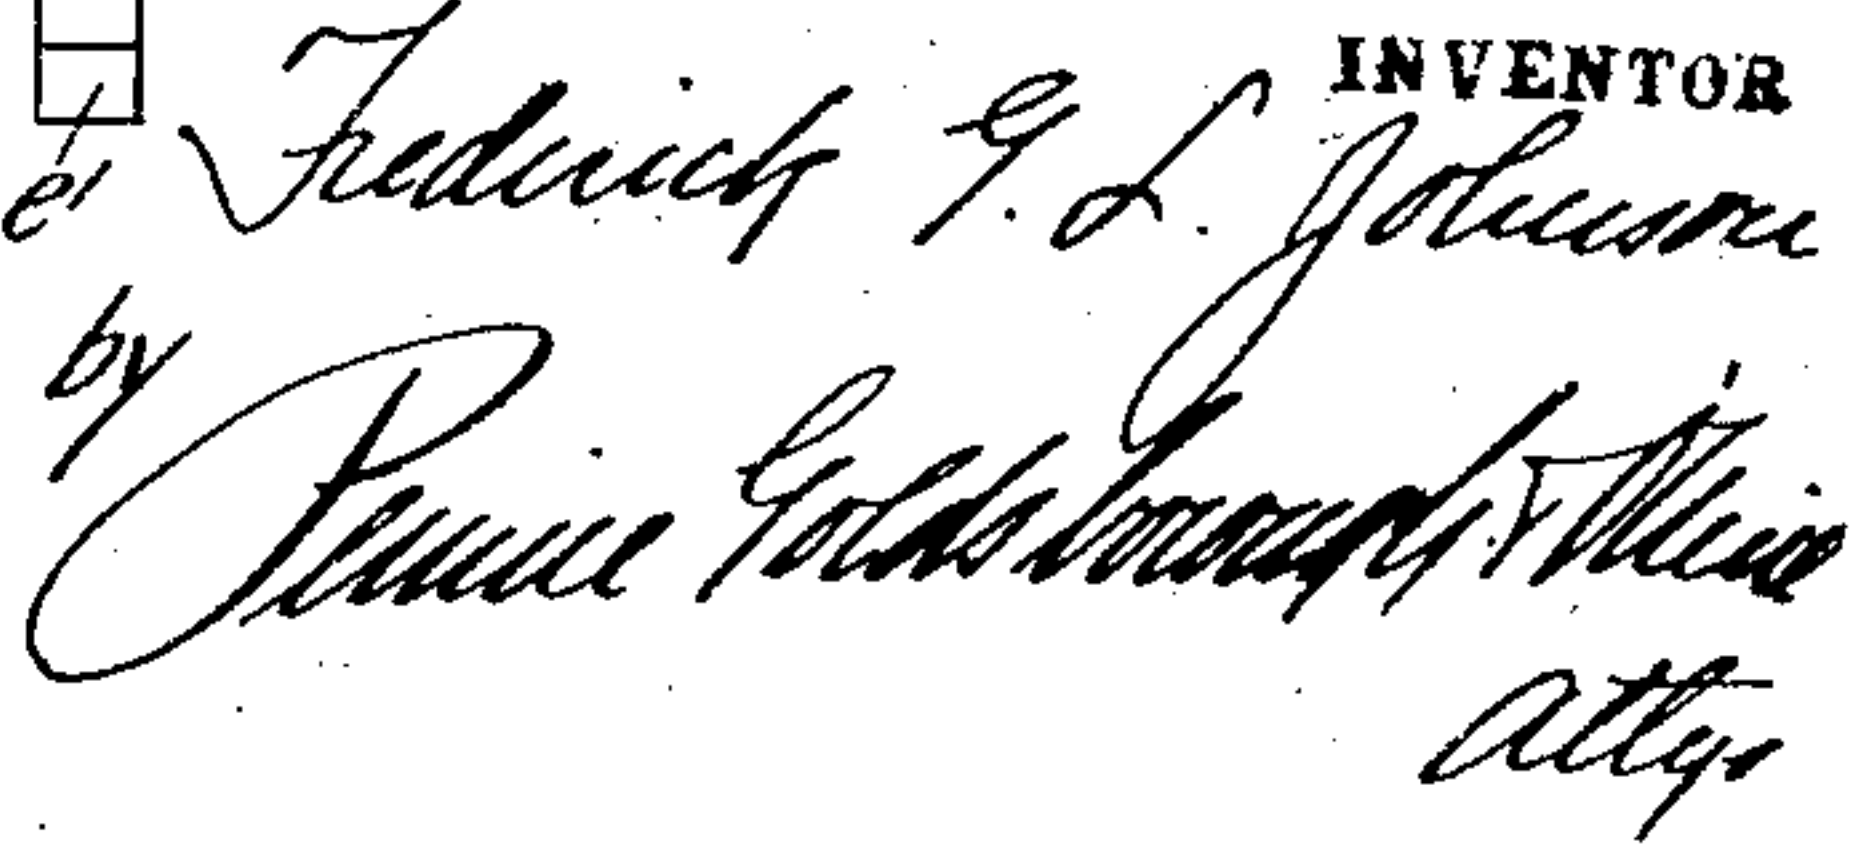 INVENTOR
Frederick G. L. Johnson
by
Pennie Goldsborough &
Attys
e'